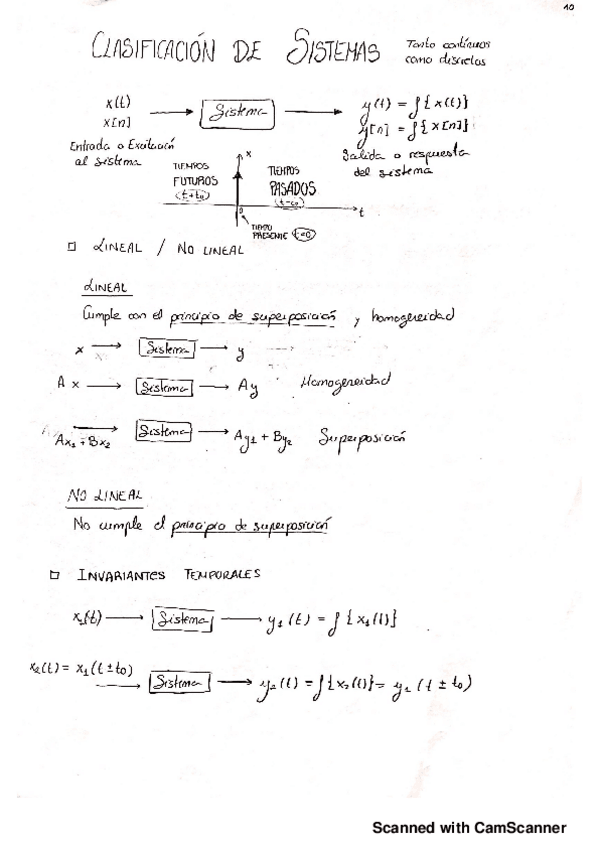 10
CLASIFICACIÓN DE SISTEMAS
Tanto continuos
como discretos
x(t)
x[n]
Sistema
y(t) = f{x(t)}
y[n] = f{x[n]}
Entrada o Excitación
al sistema
Salida o respuesta
del sistema
x
TIEMPOS
FUTUROS
(t+t₀)
TIEMPOS
PASADOS
(t-t₀)
t
0
TIEMPO
PRESENTE t=0
LINEAL / NO LINEAL
LINEAL
Cumple con el principio de superposición y homogeneidad
x → Sistema → y
Ax → Sistema → Ay Homogeneidad
Ax₁ + Bx₂ → Sistema → Ay₁ + By₂ Superposición
NO LINEAL
No cumple el principio de superposición
INVARIANTES TEMPORALES
x₁(t) → Sistema → y₁(t) = f{x₁(t)}
x₂(t) = x₁(t ± t₀) → Sistema → y₂(t) = f{x₂(t)} = y₁(t ± t₀)
Scanned with CamScanner